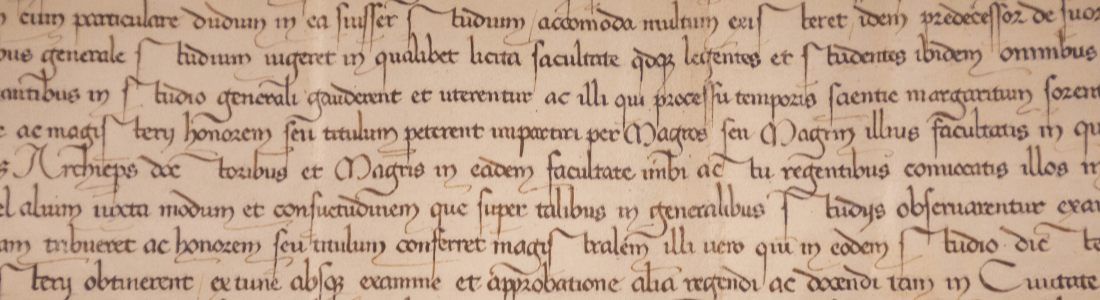 cum particulare dudum in ea fuisset studium accomoda multum existeret idem predecessor de suor
bus generale studium uigeret in qualibet licita facultate qdoqꝫ legentes et studentes ibidem omnibus
antibus in studio generali gauderent et uterentur ac illi qui processu temporis scientie margaritum forent
ac magisterij honorem seu titulum peterent impartiri per Magros seu Magrm illius facultatis in qu
Archieps doctoribus et Magris in eadem facultate inibi actu regentibus conuocatis illos in
el alium iuxta modum et consuetudinem que super talibus in generalibus studijs obseruarentur exa
am tribueret ac honorem seu titulum conferret magistralem illi uero qui in eodem studio dic
sterij obtinerent extunc absqꝫ examine et approbatione alia regendi ac docendi tam in Ciuitate